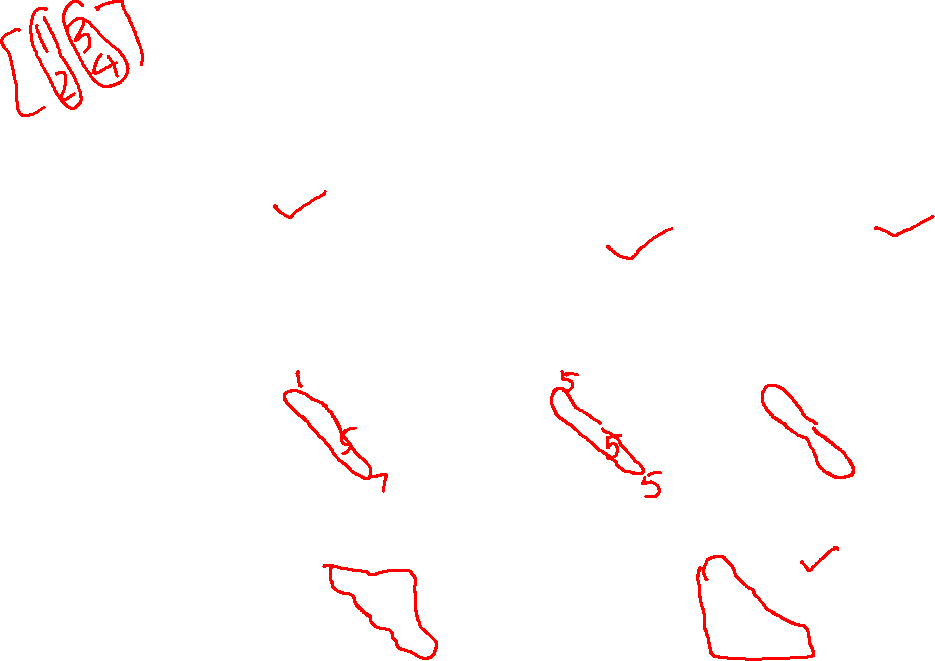 [1 3]
2 4
✓
✓ ✓
1 5
5 5
7 5
✓